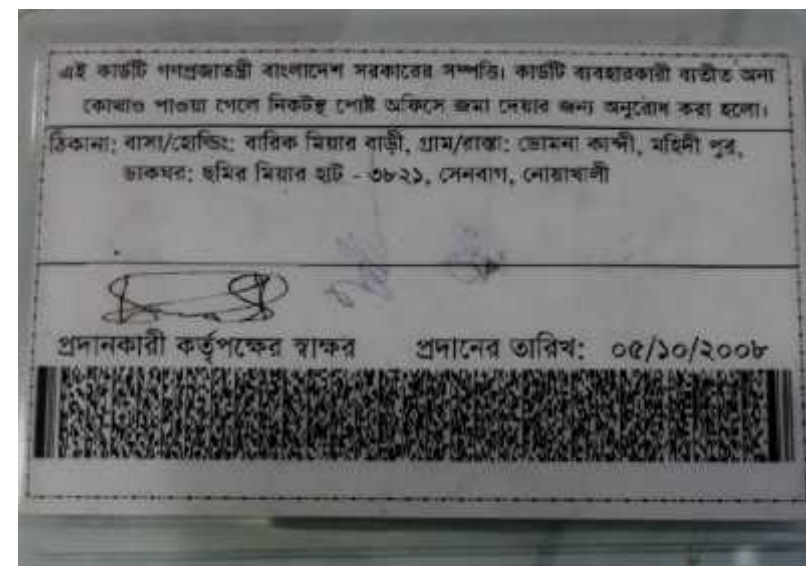 এই কার্ডটি গণপ্রজাতন্ত্রী বাংলাদেশ সরকারের সম্পত্তি। কার্ডটি ব্যবহারকারী ব্যতীত অন্য
কোথাও পাওয়া গেলে নিকটস্থ পোষ্ট অফিসে জমা দেয়ার জন্য অনুরোধ করা হলো।
ঠিকানা: বাসা/হোল্ডিং: বারিক মিয়ার বাড়ী, গ্রাম/রাস্তা: ডোমনা কান্দী, মহিদী পুর,
ডাকঘর: ছমির মিয়ার হাট - ৩৮২১, সেনবাগ, নোয়াখালী
প্রদানকারী কর্তৃপক্ষের স্বাক্ষর প্রদানের তারিখ: ০৫/১০/২০০৮